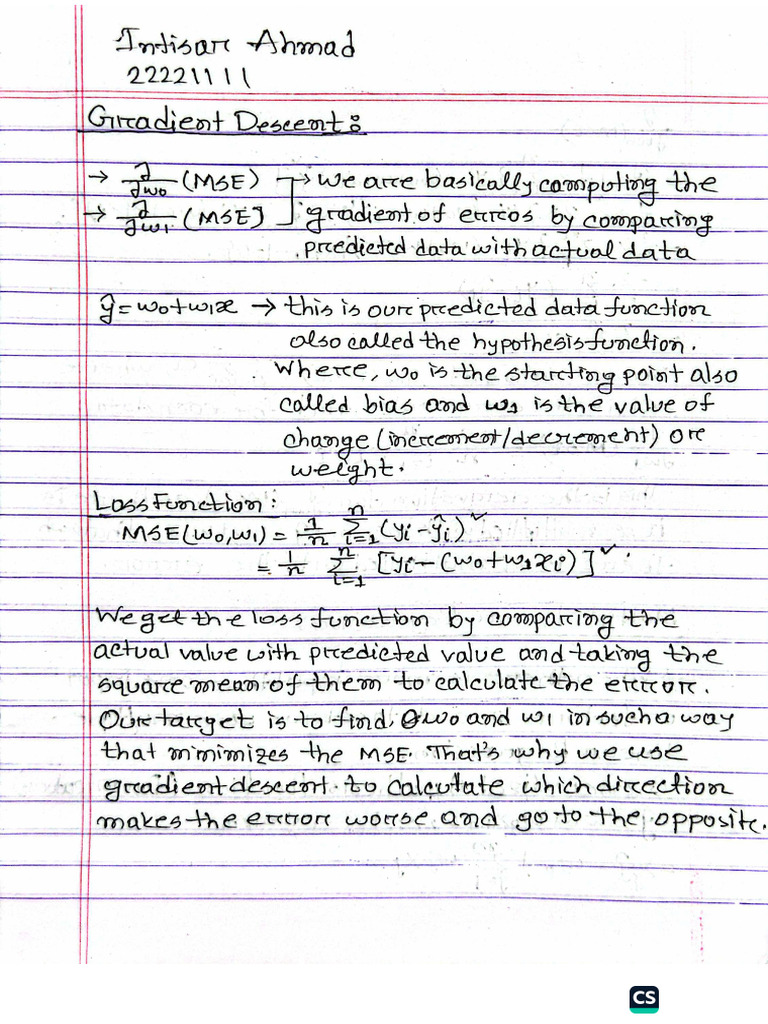 Intisar Ahmad
22221111
Gradient Descent:
→ ∂/∂w0 (MSE) → we are basically computing the
→ ∂/∂w1 (MSE] gradient of erros by comparing
predicted data with actual data
ŷ = w0+w1x → this is our predicted data function
also called the hypothesis function.
Where, w0 is the starting point also
called bias and w1 is the value of
change (increment/decrement) or
weight.
Loss Function:
MSE(w0,w1) = 1/n Σ_{i=1}^{n} (yi-ŷi)²
= 1/n Σ_{i=1}^{n} [yi-(w0+w1xi)]².
We get the loss function by comparing the
actual value with predicted value and taking the
square mean of them to calculate the error.
Our target is to find w0 and w1 in such a way
that minimizes the MSE. That's why we use
gradient descent to calculate which direction
makes the error worse and go to the opposite.
CS